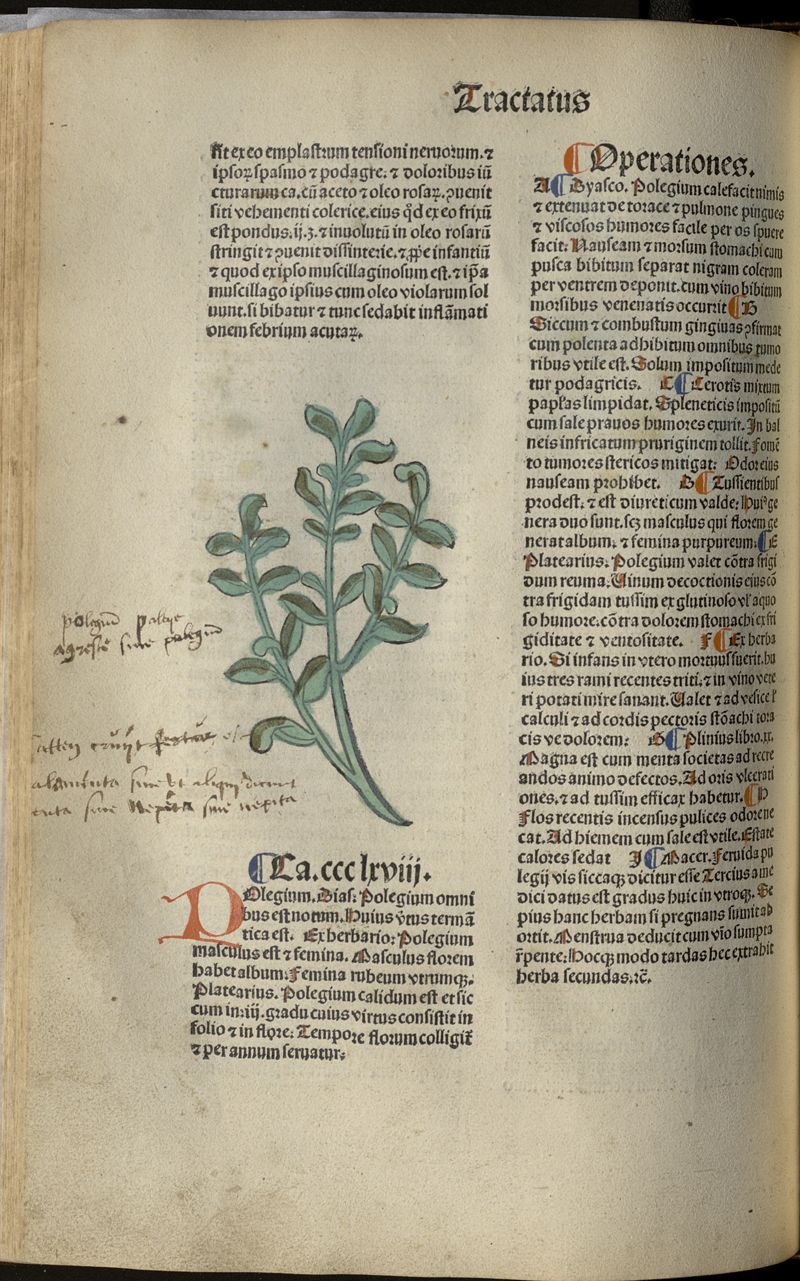 Tractatus
fit ex eo emplastrum tensioni neruorum. ⁊
ipsoꝝ spasmo ⁊ podagre. ⁊ doloribus iū
cturarum ca. cū aceto ⁊ oleo rosaꝝ. ꝯuenit
siti vehementi colerice. eius qd̄ ex eo frixū
est pondus. ij. ʒ. ⁊ inuolutū in oleo rosarū
stringit ⁊ ꝯuenit dissinterie. ⁊ ꝓpe infantiū
⁊ quod ex ipso muscillaginosum est. ⁊ ip̄a
muscillago ipsius cum oleo violarum sol
uunt. si bibatur ⁊ tunc sedabit inflāmati
onem febrium acutaꝝ.
polegiū
agreste siue polegiū
siue
siue siue nepita
¶ Ca. ccc lxviij.
POlegium. Dias. Polegium omni
bus est notum. Huius v̄tus termā
tica est. Ex herbario. Polegium
masculus est ⁊ femina. Masculus florem
habet album. Femina rubeum vtrumqꝫ.
Platearius. Polegium calidum est et sic
cum in. iij. gradu cuius virtus consistit in
folio ⁊ in flore. Tempore florum colligit̄
⁊ per annum seruatur.
¶ Operationes.
A ¶ Dyasco. Polegium calefacit nimis
⁊ extenuat de torace ⁊ pulmone pingues
⁊ viscosos humores facile per os spuere
facit. Nauseam ⁊ morsum stomachi cum
pusca bibitum separat nigram coleram
per ventrem deponit. cum vino bibitum
morsibus venenatis occurrit ¶ B
Siccum ⁊ combustum gingiuas ꝯfirmat
cum polenta adhibitum omnibus tumo
ribus vtile est. Solum impositum mede
tur podagricis. C ¶ Cerotis mixtum
papl̄as limpidat. Spleneticis impositū
cum sale prauos humores exurit. In bal
neis infricatum pruriginem tollit. Fomē
to tumores stericos mitigat. Odor eius
nauseam prohibet. D ¶ Tussientibus
prodest. ⁊ est diureticum valde. Huiꝰ ge
nera duo sunt. scꝫ masculus qui florem ge
nerat album. ⁊ femina purpureum. ¶ E
Platearius. Polegium valet cōtra frigi
dum reuma. Uinum decoctionis eius cō
tra frigidam tussim ex glutinoso vl̓ aquo
so humore. cōtra dolorem stomachi ex fri
giditate ⁊ ventositate. F ¶ Ex herba
rio. Si infans in vtero mortuus fuerit. hu
ius tres rami recentes triti. ⁊ in vino vete
ri potati mire sanant. Ualet ⁊ ad vesice ł
calculi ⁊ ad cordis pectoris stōachi tora
cis ve dolorem. G ¶ Plinius libro. xx.
Magna est cum menta societas ad recre
andos animo defectos. Ad oris vlcerati
ones. ⁊ ad tussim efficax habetur. ¶ H
Flos recentis incensus pulices odore ne
cat. Ad hiemem cum sale est vtile. Estate
calores sedat J ¶ Macer. Feruida pu
legij vis siccaqꝫ dicitur esse Tercius a me
dici datus est gradus huic in vtroqꝫ. Se
pius hanc herbam si pregnans sumit ab
ortit. Menstrua deducit cum vīo sumpta
r̄pente. Hocqꝫ modo tardas hec extrahit
herba secundas. ⁊c̄.